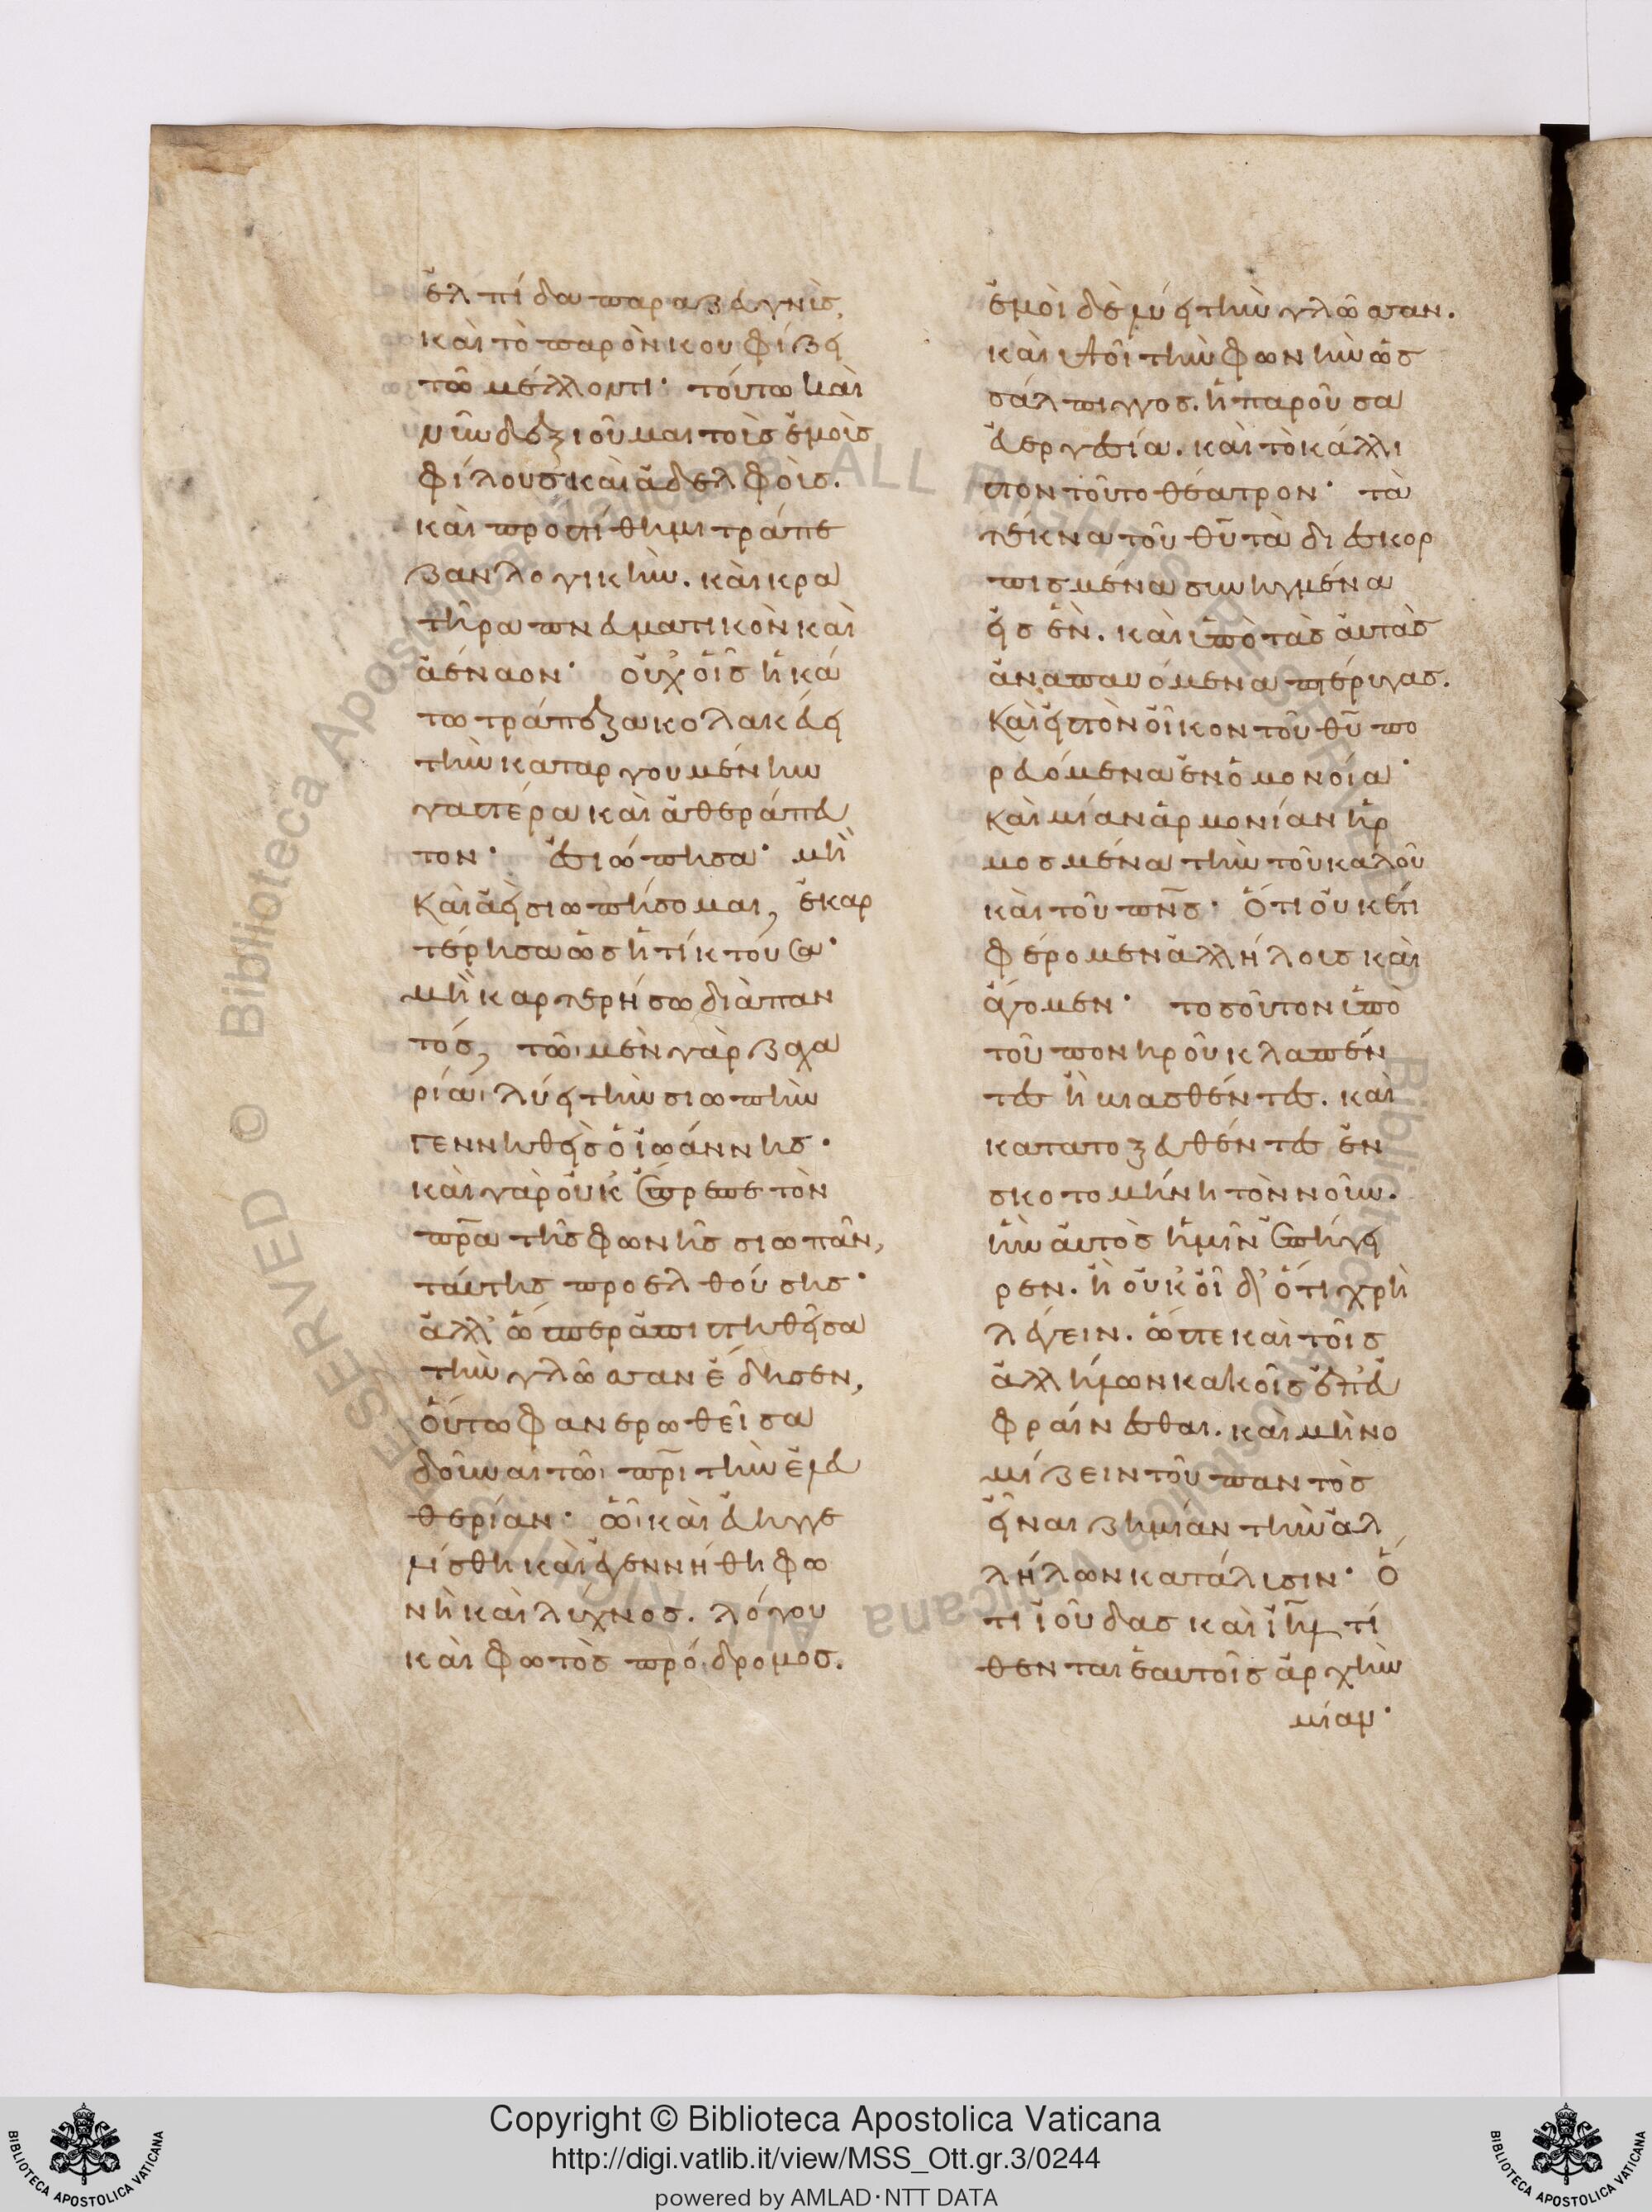 ἐλπίδα παραζευγνὺς,
καὶ τὸ παρὸν κουφίζει
τῶ μέλλοντι· τούτω καὶ
νῦν δεξιοῦμαι τοῖς ἐμοῖς
φίλοις καὶ ἀδελφοῖς.
καὶ προτίθημι τράπε
ζαν λογικὴν. καὶ κρα
τῆρα πνευματικὸν καὶ
ἀέναον· οὐχ οἷς ἡ κά
τω τράπεζα κολακεύει
τὴν καταργουμένην
γαστέρα καὶ ἀθεράπευ
τον· ἐσιώπησα· μὴ
καὶ ἀεὶ σιωπήσομαι, ἐκαρ
τέρησα ὡς ἡ τίκτουσα·
μὴ καρτερήσω διαπαν
τός, τῶι μὲν γὰρ ζαχα
ρίαι λύει τὴν σιωπὴν
γεννηθεὶς ὁ ἰωάννης·
καὶ γὰρ οὐκ ἔπρεπε τὸν
πρα τῆς φωνῆς σιωπᾶν,
ταύτης προελθούσης·
ἀλλ' ὥσπερ ἀπιστηθεῖσα
τὴν γλῶσσαν ἔδησεν,
οὕτω φανερωθεῖσα
δοῦναι τῶι πρι τὴν ἐλευ
θερίαν· ὧι καὶ εὐηγγε
λίσθη καὶ ἐγεννήθη φω
νὴ καὶ λύχνος. λόγου
καὶ φωτὸς πρόδρομος.
ἐμοὶ δὲ λύει τὴν γλῶσσαν.
καὶ ὑψοῖ τὴν φωνὴν ὡς
σάλπιγγος. ἡ παροῦσα
εὐεργεσία. καὶ τὸ κάλλι
στον τοῦτο θέατρον· τὰ
τέκνα τοῦ θυ τὰ διεσκορ
πισμένα συνηγμένα
εἰς ἓν. καὶ ὑπὸ τὰς αὐτὰς
ἀναπαυόμενα πτέρυγας.
Καὶ εἰς τὸν οἶκον τοῦ θυ πο
ρευόμενα ἐν ὁμονοία·
καὶ μίαν ἁρμονίαν ἡρ
μοσμένα τὴν τοῦ καλοῦ
καὶ τοῦ πνς· Ὅτι οὐκ ἐπι
φέρομεν ἀλλήλοις καὶ
ἄγομεν· τοσοῦτον ὑπὸ
τοῦ πονηροῦ κλαπέν
τες ἢ βιασθέντες. καὶ
κατατοξευθέντες ἐν
σκοτομήνη τὸν νοῦν.
ἣν αὐτὸς ἡμῖν ἐπήγει
ρεν. ἢ οὐκ οἶδ' ὅτι χρὴ
λέγειν. ὥστε καὶ τοῖς
ἀλλήλων κακοῖς ἐπευ
φραίνεσθαι. καὶ μὴ νο
μίζειν τοῦ παντὸς
εἶναι ζημίαν τὴν ἀλ
λήλων κατάλυσιν· Ὅ
τι ἰούδας καὶ ιηλ τί
θενται ἑαυτοῖς ἀρχὴν
μίαν·
Copyright © Biblioteca Apostolica Vaticana
http://digi.vatlib.it/view/MSS_Ott.gr.3/0244
powered by AMLAD·NTT DATA